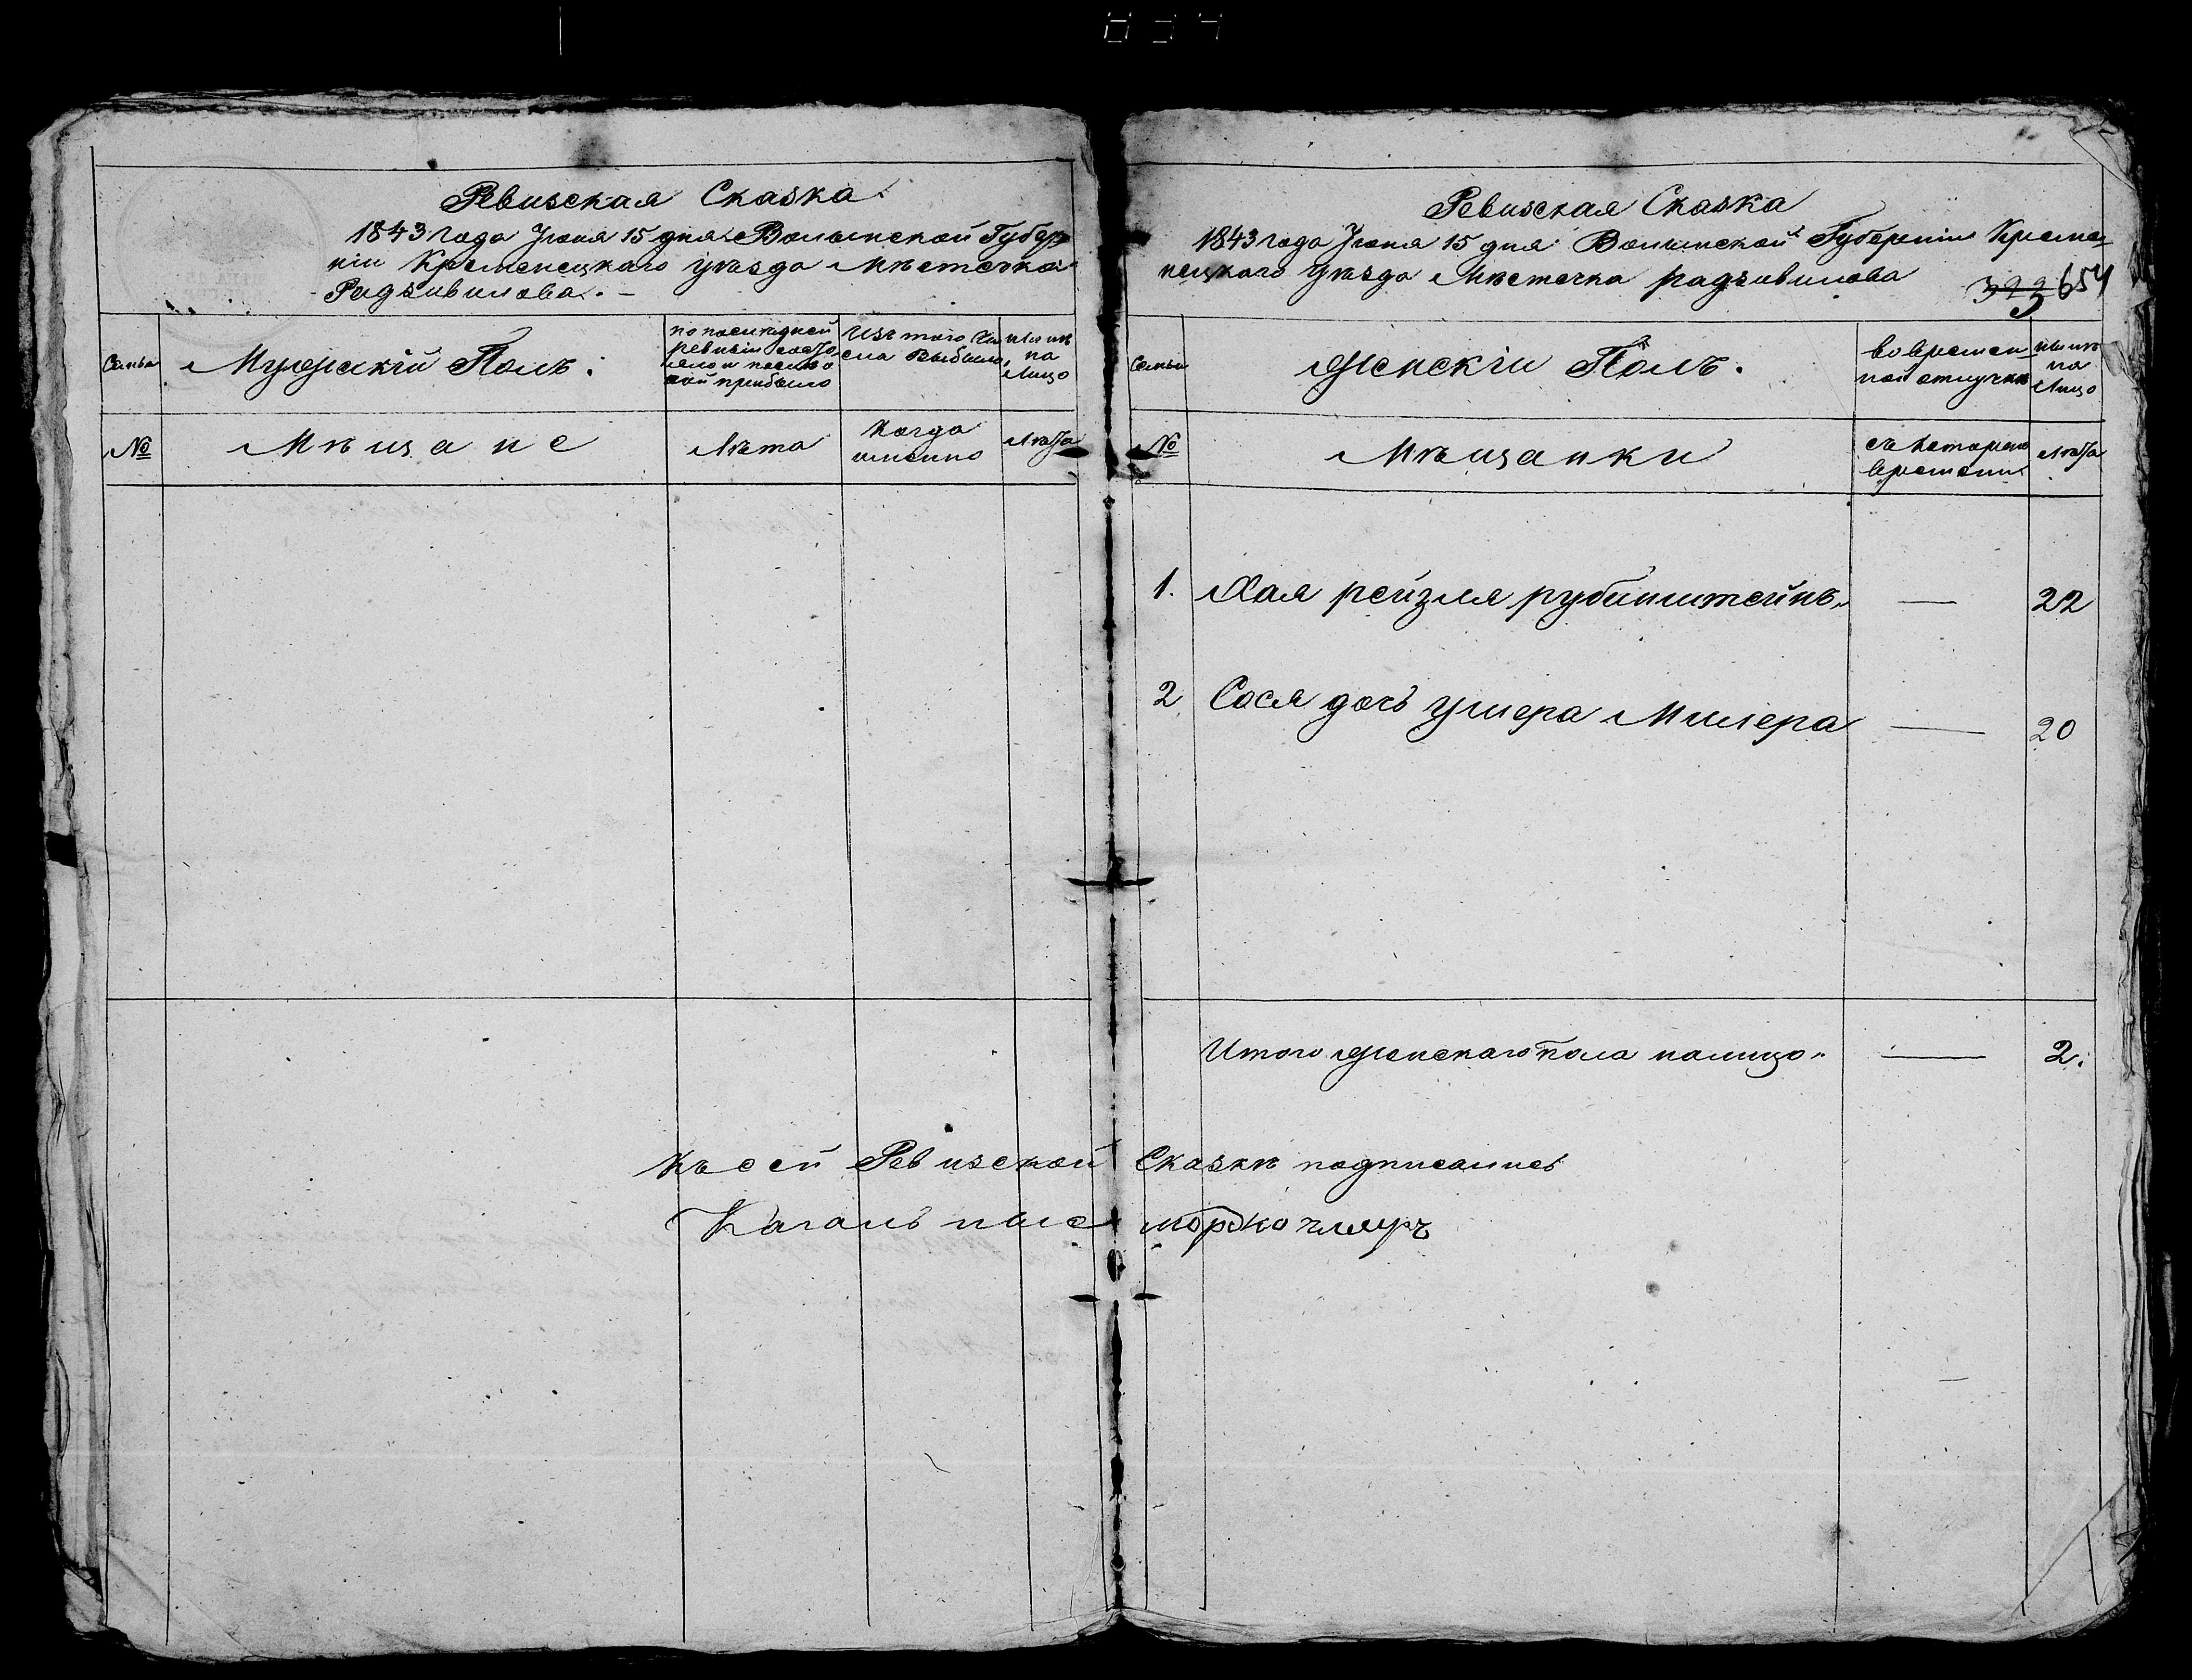 Ревизская Сказка
1843 года Июня 15 дня Волынской Губер
ніи Кременецкаго уѣзда Мѣстечка
Радзивилова. —
Семьи
Мужескій Полъ.
по последней
ревизіи состо
яло и после
оной прибыло
Изъ того чи
сла выбыло
Ныне
на
Лицо
№
Мѣщане
Лѣта
Когда
именно
Лѣта
Ревизская Сказка
1843 года Июня 15 дня Волынской Губерніи Креме
нецкаго Уѣзда Мѣстечка радзивилова
654
Семьи
Женскій Полъ.
во времен
ной отлучкѣ
ныне
на
Лицо
№
Мѣщанки
съ котораго
времени
Лѣта
1. Хая рейзля рубинштейнъ — 22
2 Сося дочь Ушера Милера — 20
Итого женскаго пола налицо — 2.
Къ сей Ревизской Сказкѣ подписались
Кагальные